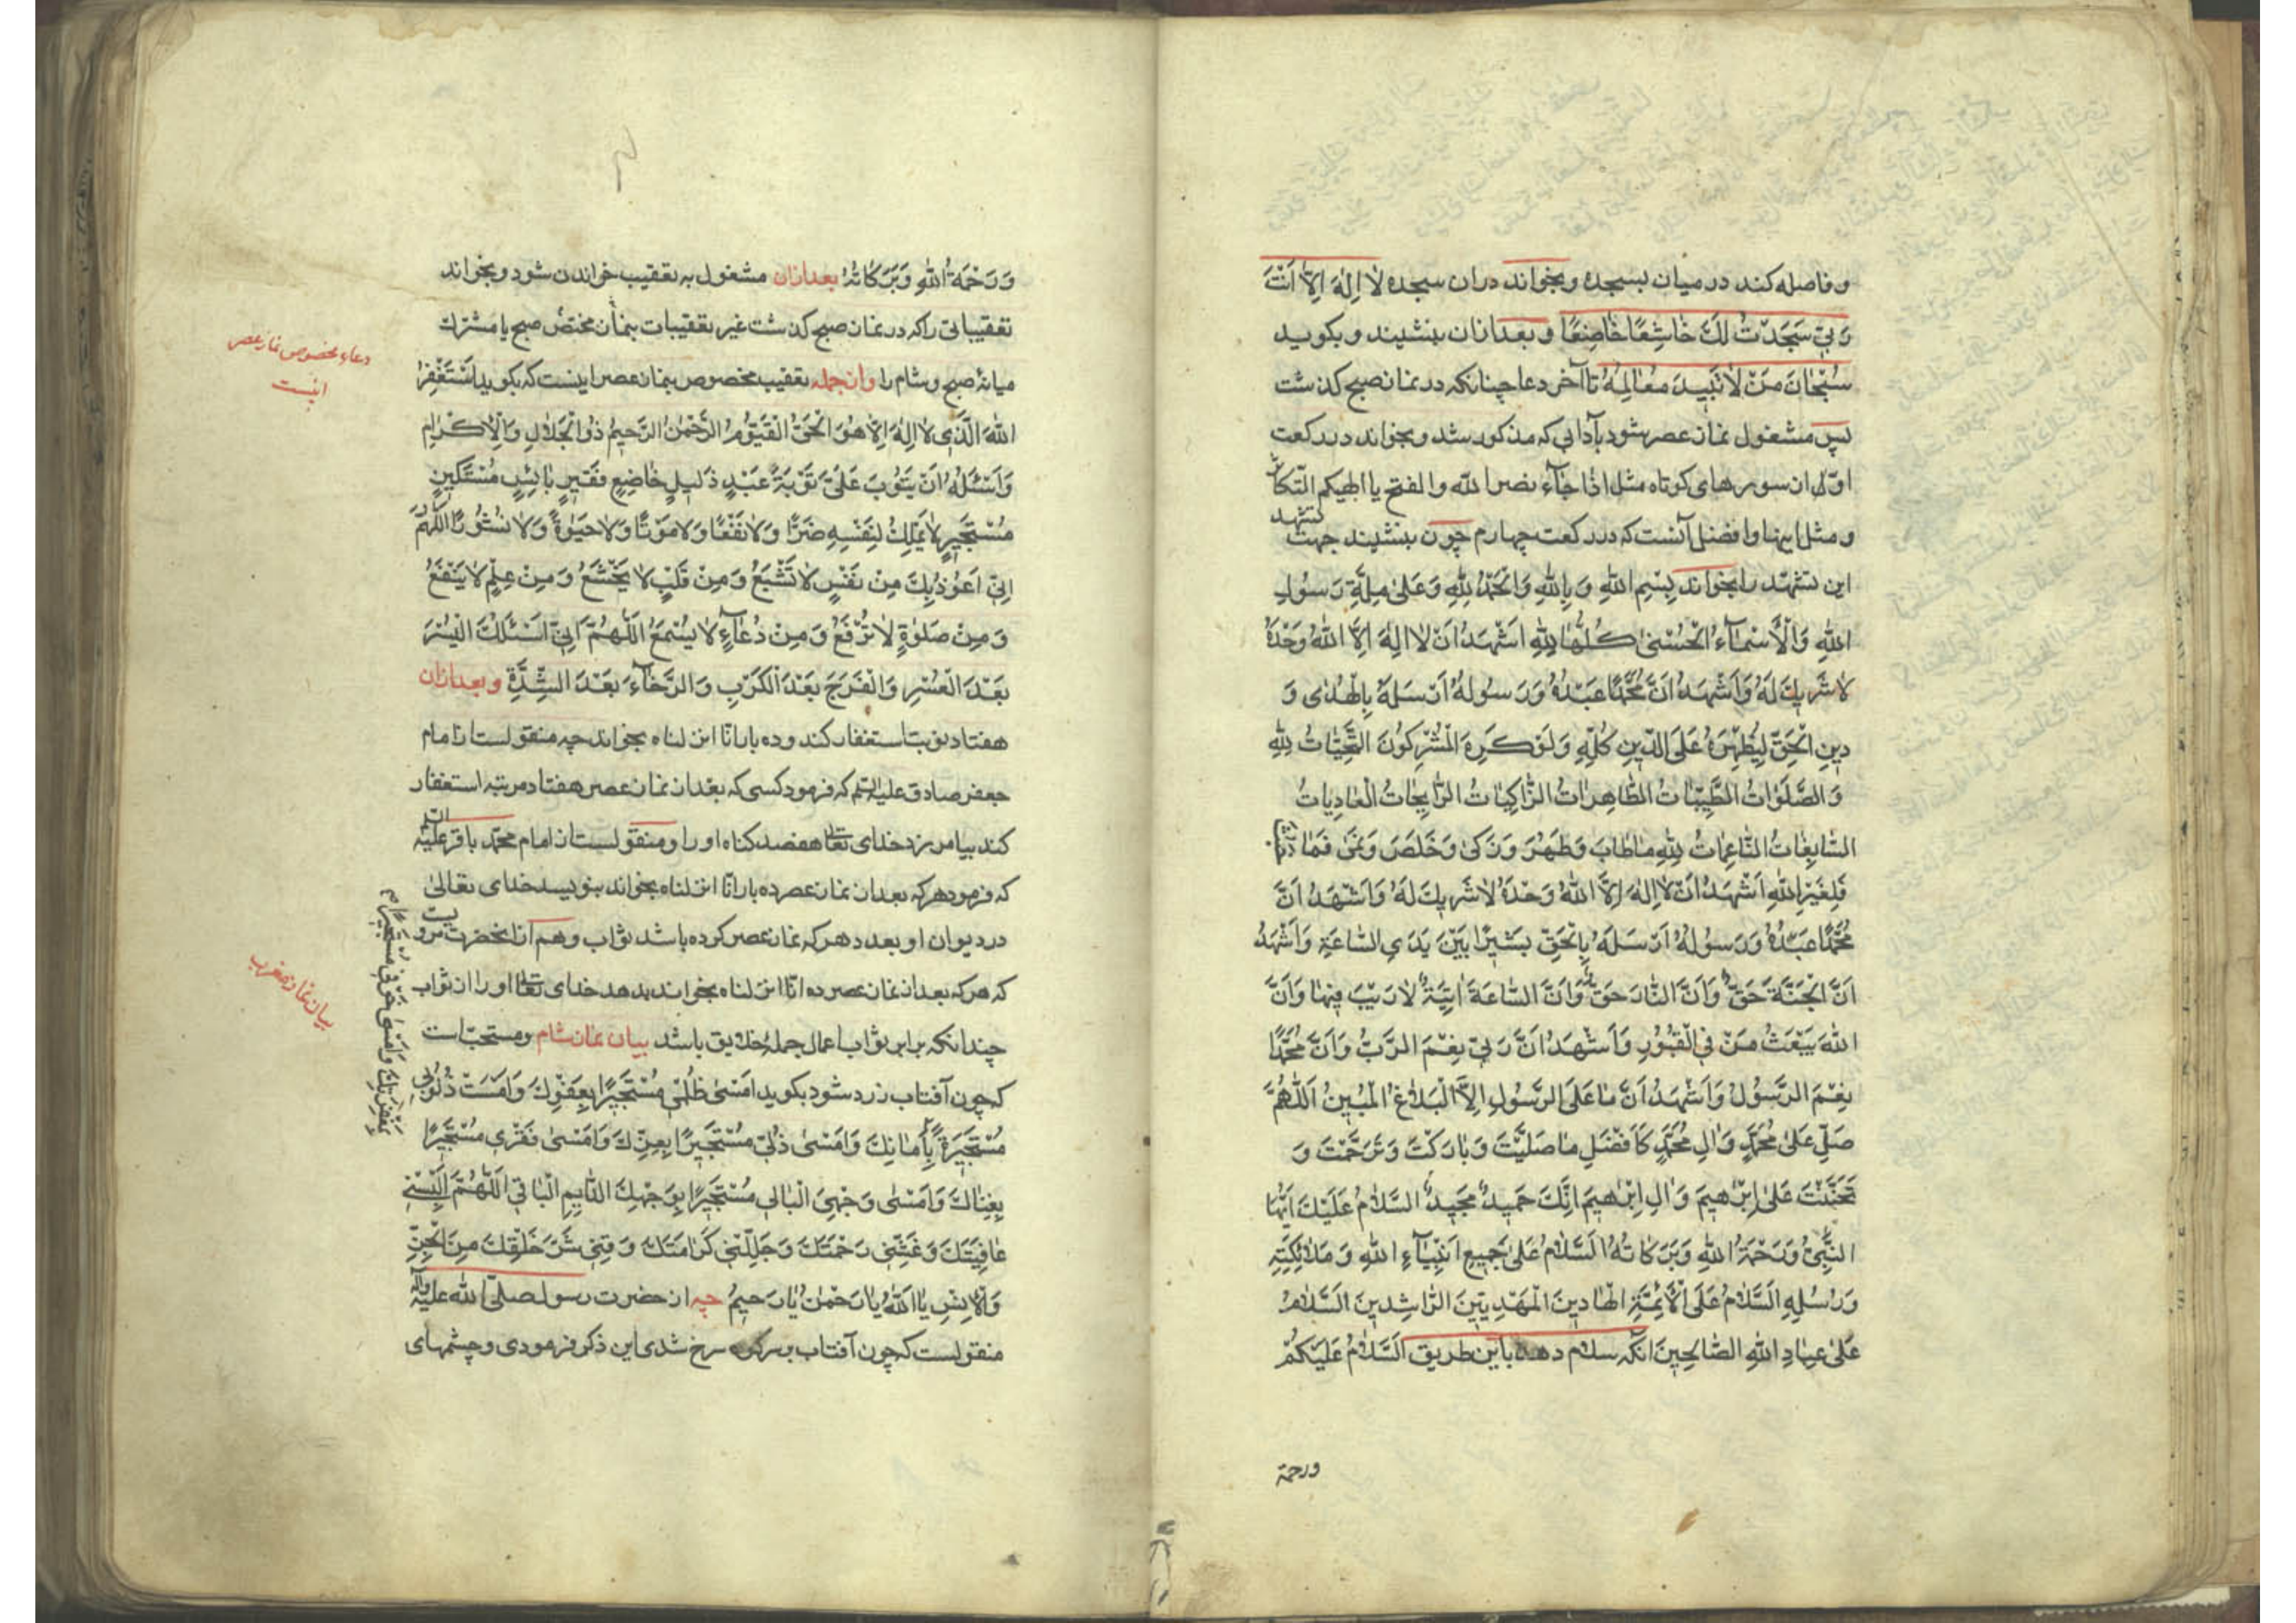 وفاصله کند در میان بسجده و بخواند دران سجده لَا اِلٰهَ اِلَّا اَنْتَ
رَبّی سَجَدْتُ لَكَ خَاشِعًا خَاضِعًا و بعدازان بنشیند و بکوید
سُبْحَانَ مَنْ لَا تَبِیدُ مَعَالِمُهُ تا آخر دعا چنانکه در نماز صبح کذشت
پس مشغول نماز عصر شود بآدابی که مذکور شد و بخواند در رکعت
اوّل از سورهای کوتاه مثل اذا جآء نصر اللّه والفتح یا الهیکم التّکاثر
و مثل اینها و افضل آنست که در رکعت چهارم چون بنشیند جهت تشهد
این تشهّد را بخواند بِسْمِ اللّهِ وَ بِاللّهِ وَ الْحَمْدُ لِلّهِ وَ عَلیٰ مِلَّةِ رَسُولِ
اللّهِ وَ الْاَسْمَآءُ الْحُسْنیٰ كُلُّهَا لِلّهِ اَشْهَدُ اَنْ لَا اِلٰهَ اِلَّا اللّهُ وَحْدَهُ
لَا شَرِیكَ لَهُ وَ اَشْهَدُ اَنَّ مُحَمَّدًا عَبْدُهُ وَ رَسُولُهُ اَرْسَلَهُ بِالْهُدٰی وَ
دِینِ الْحَقِّ لِیُظْهِرَهُ عَلَی الدّینِ كُلِّهِ وَ لَوْ كَرِهَ الْمُشْرِكُونَ التَّحِیَّاتُ لِلّهِ
وَ الصَّلَوَاتُ الطَّیِّبَاتُ الطَّاهِرَاتُ الزَّاكِیَاتُ الرَّایِحَاتُ الْغَادِیَاتُ
السَّابِغَاتُ النَّاعِمَاتُ لِلّهِ مَا طَابَ وَ طَهُرَ وَ زَكیٰ وَ خَلَصَ وَ نَمیٰ فَمَا
فَلِغَیْرِ اللّهِ اَشْهَدُ اَنْ لَا اِلٰهَ اِلَّا اللّهُ وَحْدَهُ لَا شَرِیكَ لَهُ وَ اَشْهَدُ اَنَّ
مُحَمَّدًا عَبْدُهُ وَ رَسُولُهُ اَرْسَلَهُ بِالْحَقِّ بَشیرًا بَیْنَ یَدَیِ السَّاعَةِ وَ اَشْهَدُ
اَنَّ الْجَنَّةَ حَقٌّ وَ اَنَّ النَّارَ حَقٌّ وَ اَنَّ السَّاعَةَ اٰتِیَةٌ لَا رَیْبَ فیهَا وَ اَنَّ
اللّهَ یَبْعَثُ مَنْ فِی الْقُبُورِ وَ اَشْهَدُ اَنَّ رَبّی نِعْمَ الرَّبُّ وَ اَنَّ مُحَمَّدًا
نِعْمَ الرَّسُولُ وَ اَشْهَدُ اَنَّ مَا عَلَی الرَّسُولِ اِلَّا الْبَلَاغُ الْمُبینُ اَللّهُمَّ
صَلِّ عَلیٰ مُحَمَّدٍ وَ اٰلِ مُحَمَّدٍ كَاَفْضَلِ مَا صَلَّیْتَ وَ بَارَكْتَ وَ تَرَحَّمْتَ وَ
تَحَنَّنْتَ عَلیٰ اِبْرٰهیمَ وَ اٰلِ اِبْرٰهیمَ اِنَّكَ حَمیدٌ مَجیدٌ السَّلَامُ عَلَیْكَ اَیُّهَا
النَّبِیُّ وَ رَحْمَةُ اللّهِ وَ بَرَكَاتُهُ السَّلَامُ عَلیٰ جَمیعِ اَنْبِیَآءِ اللّهِ وَ مَلٰئِكَتِهِ
وَ رُسُلِهِ السَّلَامُ عَلَی الْاَئِمَّةِ الْهَادینَ الْمَهْدِیّینَ الرَّاشِدینَ السَّلَامُ
عَلیٰ عِبَادِ اللّهِ الصَّالِحینَ انکه سلام دهد باین طریق السَّلَامُ عَلَیْكُمْ
ورحمة
وَ رَحْمَةُ اللّهِ وَ بَرَكَاتُهُ بعدازان مشغول به تعقیب خواندن شود و بخواند
تعقیباتی را که در نماز صبح کذشت غیر تعقیبات بنماز مختصّ صبح یا مشترك
میانهٔ صبح و شام را وازجمله تعقیب مخصوص بنماز عصر اینست که بکوید اَسْتَغْفِرُ
اللّهَ الَّذی لَا اِلٰهَ اِلَّا هُوَ الْحَیُّ الْقَیُّومُ الرَّحْمٰنُ الرَّحیمُ ذُو الْجَلَالِ وَ الْاِكْرَامِ
وَ اَسْئَلُهُ اَنْ یَتُوبَ عَلَیَّ تَوْبَةَ عَبْدٍ ذَلیلٍ خَاضِعٍ فَقیرٍ بَائِسٍ مُسْتَكینٍ
مُسْتَجیرٍ لَا یَمْلِكُ لِنَفْسِهِ ضَرًّا وَ لَا نَفْعًا وَ لَا مَوْتًا وَ لَا حَیٰوةً وَ لَا نُشُورًا اَللّهُمَّ
اِنّی اَعُوذُ بِكَ مِنْ نَفْسٍ لَا تَشْبَعُ وَ مِنْ قَلْبٍ لَا یَخْشَعُ وَ مِنْ عِلْمٍ لَا یَنْفَعُ
وَ مِنْ صَلٰوةٍ لَا تُرْفَعُ وَ مِنْ دُعَآءٍ لَا یُسْمَعُ اَللّهُمَّ اِنّی اَسْئَلُكَ الْیُسْرَ
بَعْدَ الْعُسْرِ وَ الْفَرَجَ بَعْدَ الْكَرْبِ وَ الرَّخَآءَ بَعْدَ الشِّدَّةِ وبعدازان
هفتاد نوبت استغفار کند و ده بار انّا انزلناه بخواند چه منقولست از امام
جعفر صادق علیه السّلم که فرمود کسی که بعد از نماز عصر هفتاد مرتبه استغفار
کند بیامرزد خدای تعا هفصد کناه او را و منقولست از امام محمّد باقر علیه السلم
که فرمود هر که بعد از نماز عصر ده بار انّا انزلناه بخواند بنویسد خدای تعالیٰ
در دیوان او بعدد هر که نماز عصر کرده باشد ثواب و هم از انحضرت مرویست
که هر که بعد از نماز عصر ده انّا انزلناه بخواند بدهد خدای تعا او را از ثواب
چندانکه برابر ثواب اعمال جملهٔ خلایق باشد بیان نماز شام و مستحبّ است
که چون آفتاب زرد شود بکوید اَمْسیٰ ظُلْمی مُسْتَجیرًا بِعَفْوِكَ وَ اَمْسَتْ ذُنُوبی
مُسْتَجیرَةً بِاَمَانِكَ وَ اَمْسیٰ ذُلّی مُسْتَجیرًا بِعِزِّكَ وَ اَمْسیٰ فَقْری مُسْتَجیرًا
بِغِنَاكَ وَ اَمْسیٰ وَجْهِیَ الْبَالی مُسْتَجیرًا بِوَجْهِكَ الدَّایِمِ الْبَاقی اَللّهُمَّ اَلْبِسْنی
عَافِیَتَكَ وَ غَشِّنی رَحْمَتَكَ وَ جَلِّلْنی كَرَامَتَكَ وَ قِنی شَرَّ خَلْقِكَ مِنَ الْجِنِّ
وَ الْاِنْسِ یَا اَللّهُ یَا رَحْمٰنُ یَا رَحیمُ چه از حضرت رسول صلّی اللّه علیه وآله
منقولست که چون آفتاب بر سر کوه سرخ شدی این ذکر فرمودی و چشمهای
دعاء مخصوص نماز عصر
اینست
بیان نماز مغرب